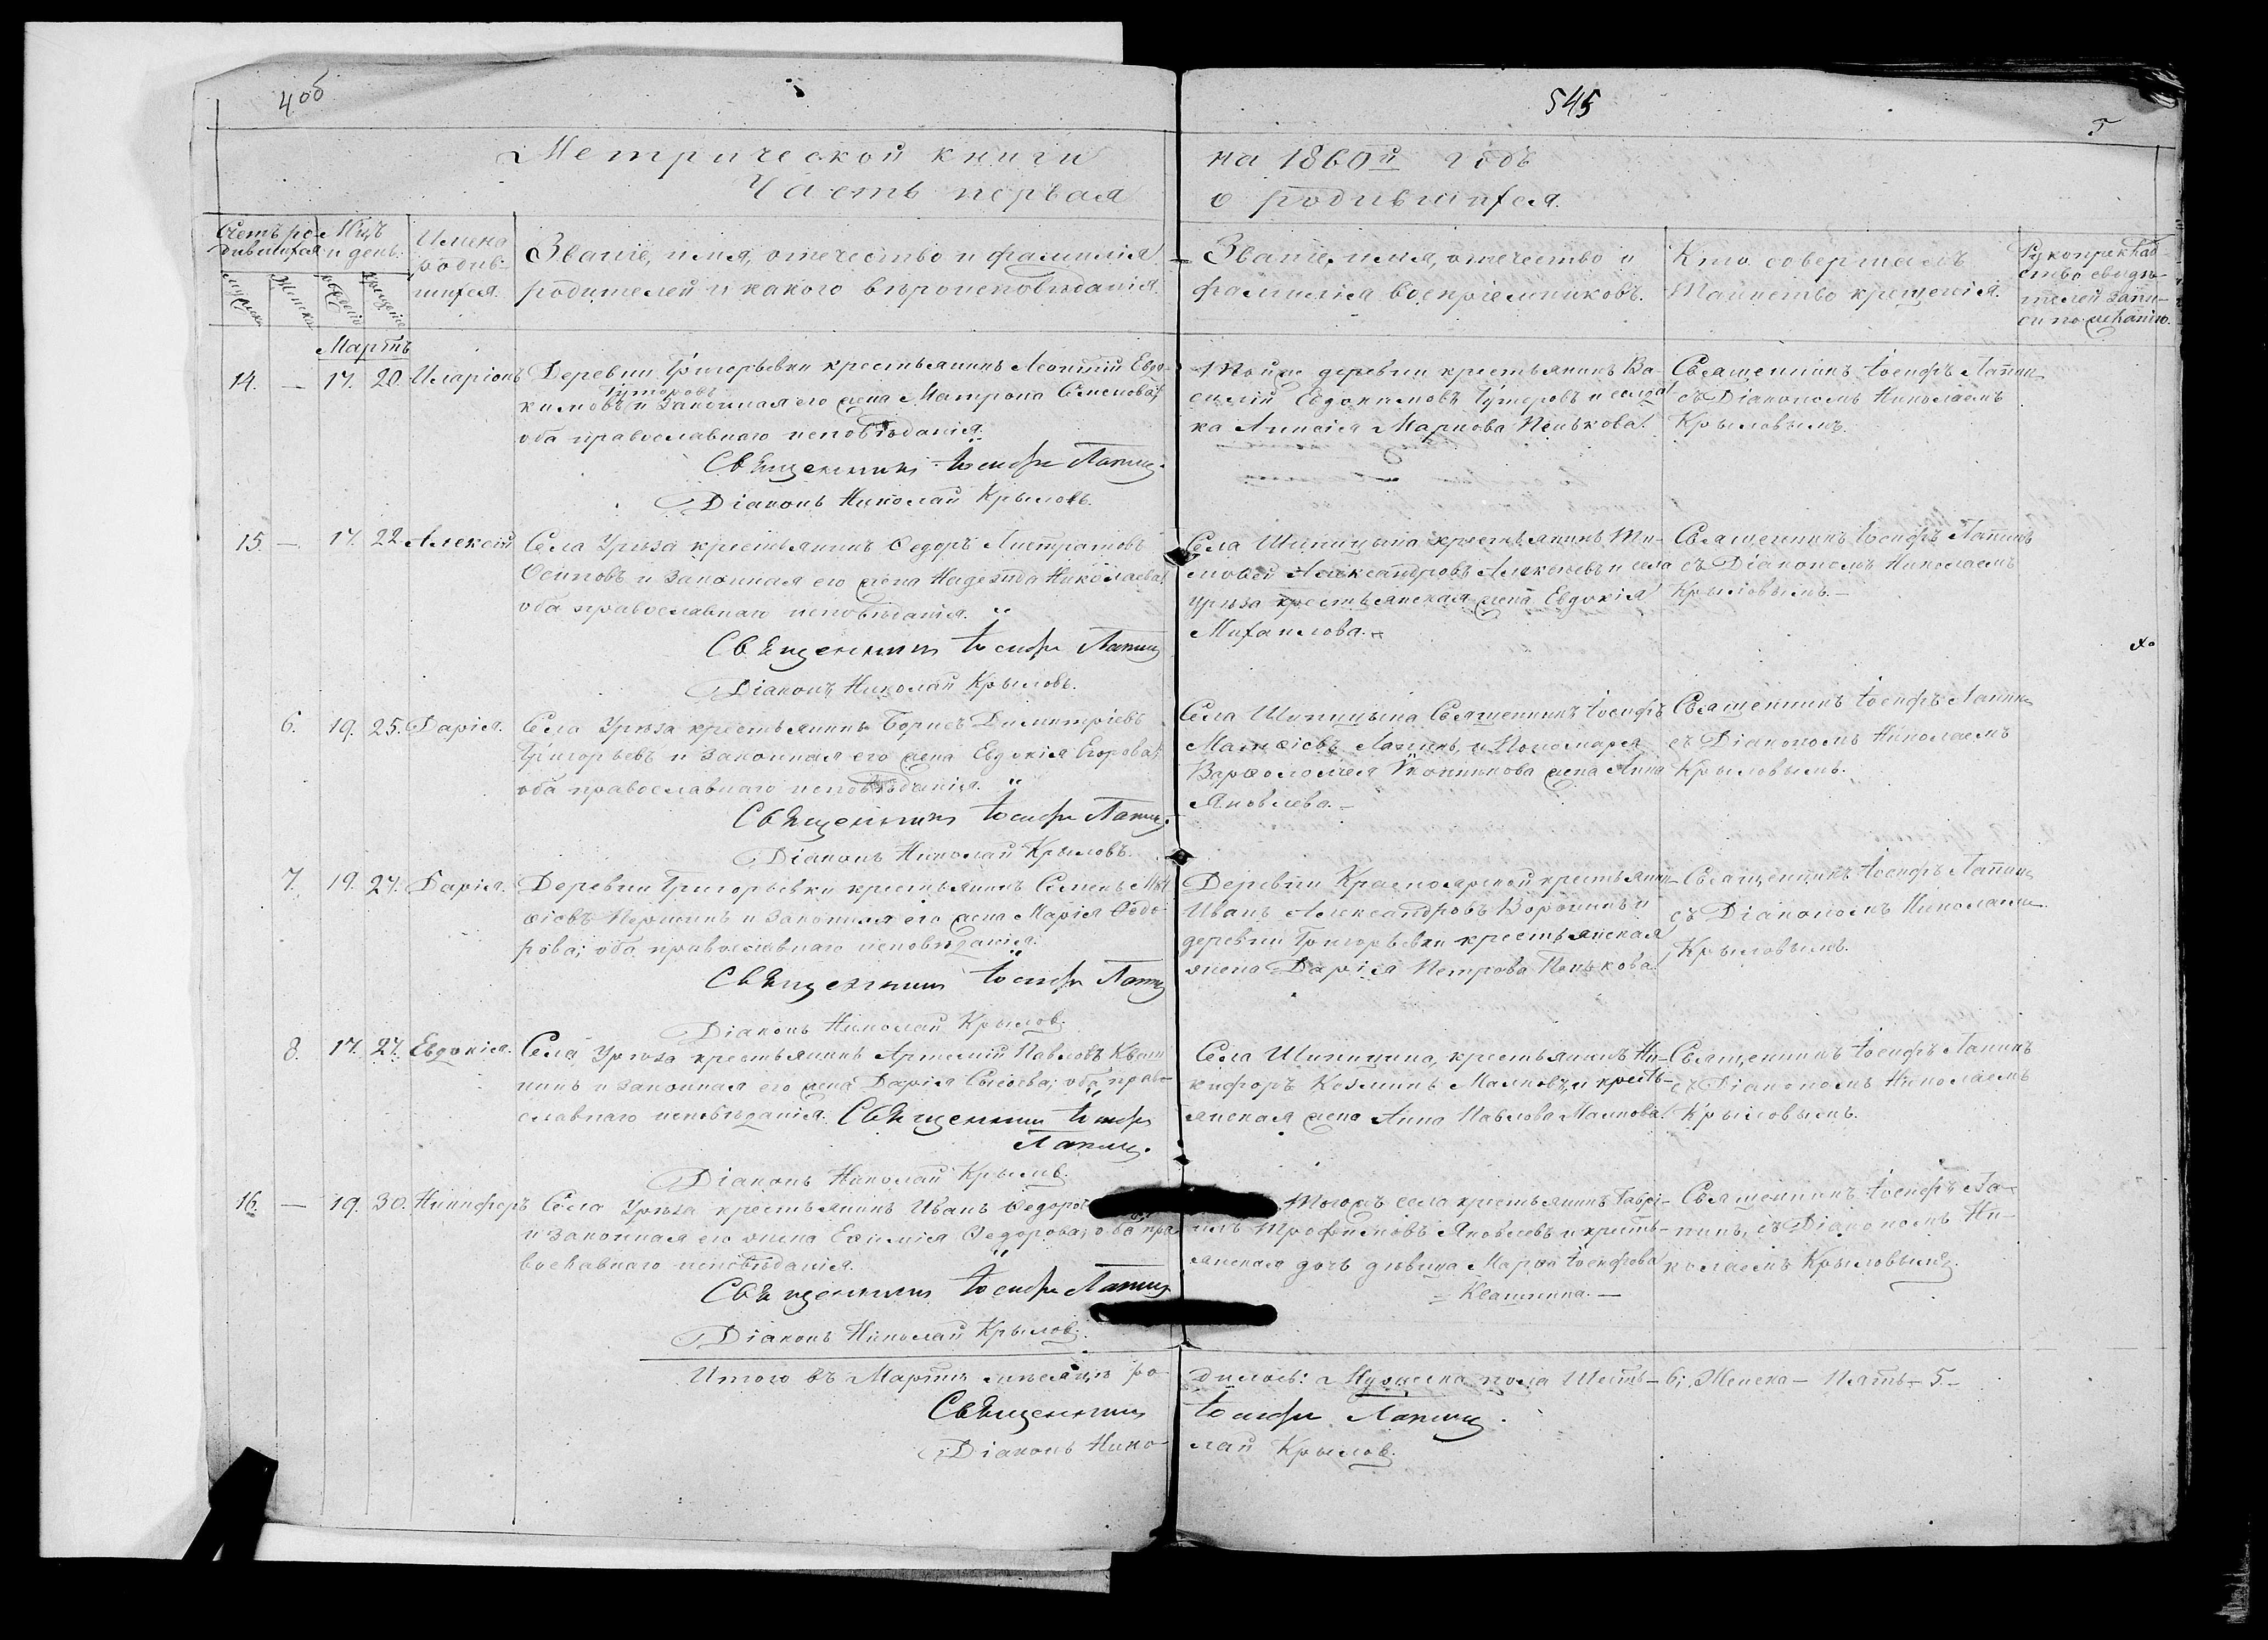 4 об
545
5
Метрической книги на 1860й годъ
Часть первая о родившихся.
Счетъ родившихся
Мцъ и день.
Имена родившихся.
Званіе, имя, отечество и фамилія
родителей и какого вѣроисповѣданія.
Званіе, имя, отечество и
фамилія воспріемниковъ.
Кто совершалъ
Таинство крещенія.
Рукоприклад-
ство свидѣ-
телей запи-
си по желанію.
Мужеска
Женска
Рожденія
Крещенія
Мартъ
14. — 17. 20. Иларіонъ
Деревни Григорьевки крестьянинъ Леонтій Евдо-
кимовъ Гутеровъ и законная его жена Матрона Семенова;
оба православнаго исповѣданія.
Священникъ Іосифъ Лапинъ.
Діаконъ Николай Крыловъ.
Тойже деревни крестьянинъ Ва-
силій Евдокимовъ Гутеровъ и солдат
ка Анисія Маркова Пенькова.
Священникъ Іосифъ Лапинъ
съ Діакономъ Николаемъ
Крыловымъ.
15. — 17. 22 Алексѣй
Села Урѣза крестьянинъ Ѳедоръ Каллистратовъ
Осиповъ и законная его жена Надежда Николаева;
оба православнаго исповѣданія.
Священникъ Іосифъ Лапинъ
Діаконъ Николай Крыловъ.
Села Шипицына крестьянинъ Ти-
моѳей Александровъ Алексѣевъ и села
Урѣза крестьянская жена Евдокія
Михаилова.
Священникъ Іосифъ Лапинъ
съ Діакономъ Николаемъ
Крыловымъ.—
6. 19. 25. Дарія.
Села Урѣза крестьянинъ Борисъ Димитріевъ
Григорьевъ и законная его жена Евдокія Егорова;
оба православнаго исповѣданія.
Священникъ Іосифъ Лапинъ.
Діаконъ Николай Крыловъ.
Села Шипицына Священникъ Іосифъ
Матѳіевъ Лапинъ, и Пономаря
Варѳоломея жена Анна
Яковлева.—
Священникъ Іосифъ Лапинъ
съ Діакономъ Николаемъ
Крыловымъ.
7. 19. 27. Дарія.
Деревни Григорьевки крестьянинъ Семенъ Мат
ѳіевъ Першинъ и законная его жена Марія Ѳедо-
рова; оба православнаго исповѣданія.
Священникъ Іосифъ Лапинъ
Діаконъ Николай Крыловъ.
Деревни Красноярской крестьянин-
Иванъ Александровъ Воронинъ и
деревни Григорьевки крестьянская
жена Дарія Петрова Пенькова.
Священникъ Іосифъ Лапинъ
съ Діакономъ Николаемъ
Крыловымъ.
8. 17. 27. Евдокія.
Села Урѣза крестьянинъ Артемій Павловъ Кваш
нинъ и законная его жена Дарія Сысоева; оба право-
славнаго исповѣданія. Священникъ Іосифъ
Лапинъ.
Діаконъ Николай Крыловъ.
Села Шипицина, крестьянинъ Ни-
кифоръ Козминъ Малковъ, и кресть-
янская жена Анна Павлова Малкова.
Священникъ Іосифъ Лапинъ
съ Діакономъ Николаемъ
Крыловымъ.
16. — 19. 30. Никифоръ
Села Урѣза крестьянинъ Иванъ Ѳедоров
и законная его жена Евѳимія Ѳедорова; оба пра-
вославнаго исповѣданія.
Священникъ Іосифъ Лапинъ
Діаконъ Николай Крыловъ.
Тогожъ села крестьянинъ Гаврі-
илъ Трофимовъ Яковлевъ и кресть-
янская дочь дѣвица Марѳа Іосифова
Квашнина.—
Священникъ Іосифъ Ла-
пинъ, съ Діакономъ Ни-
колаемъ Крыловымъ.
Итого въ Мартѣ мѣсяцѣ ро-
дилось: Мужеска пола Шесть—6; Женска— Пять—5.—
Священникъ Іосифъ Лапинъ.
Діаконъ Нико-
лай Крыловъ.